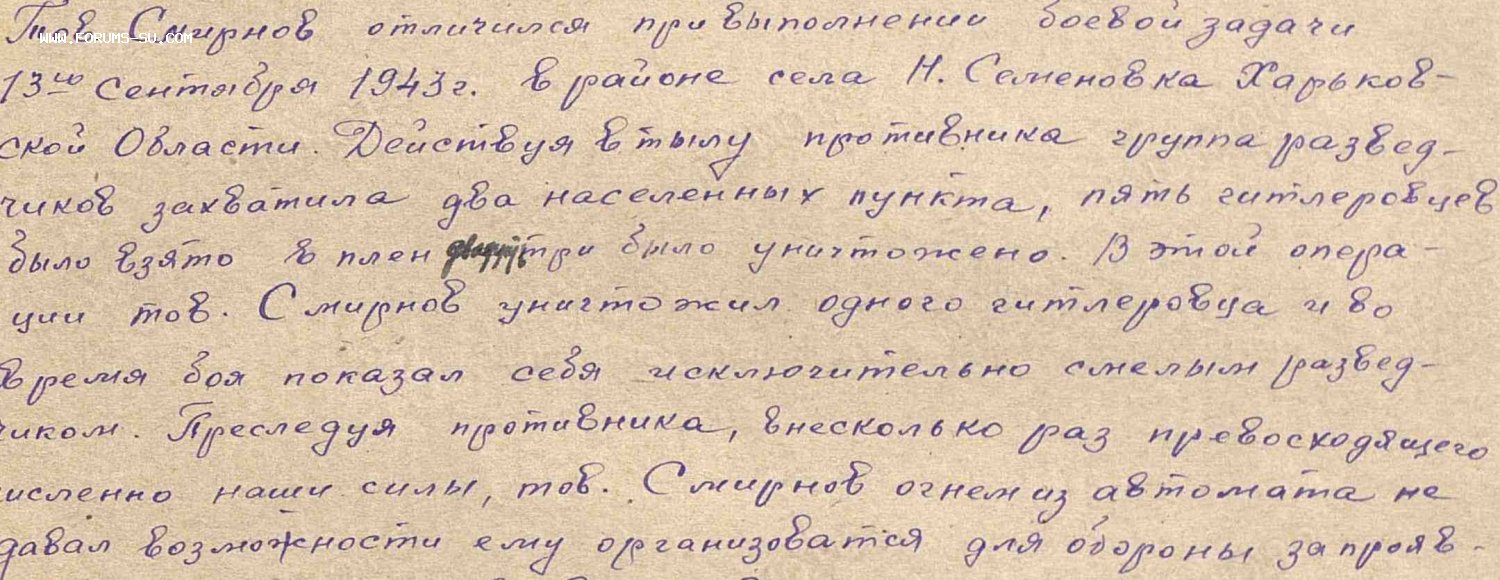 Тов. Смирнов отличился при выполнении боевой задачи
www.forums-su.com
13го сентября 1943г. в районе села Н. Семеновка Харьков-
ской Области. Действуя в тылу противника группа развед-
чиков захватила два населенных пункта, пять гитлеровцев
было взято в плен три было уничтожено. В этой опера-
ции тов. Смирнов уничтожил одного гитлеровца и во
время боя показал себя исключительно смелым развед-
чиком. Преследуя противника, внесколько раз превосходящего
численно наши силы, тов. Смирнов огнем из автомата не
давал возможности ему организоватся для обороны за прояв-